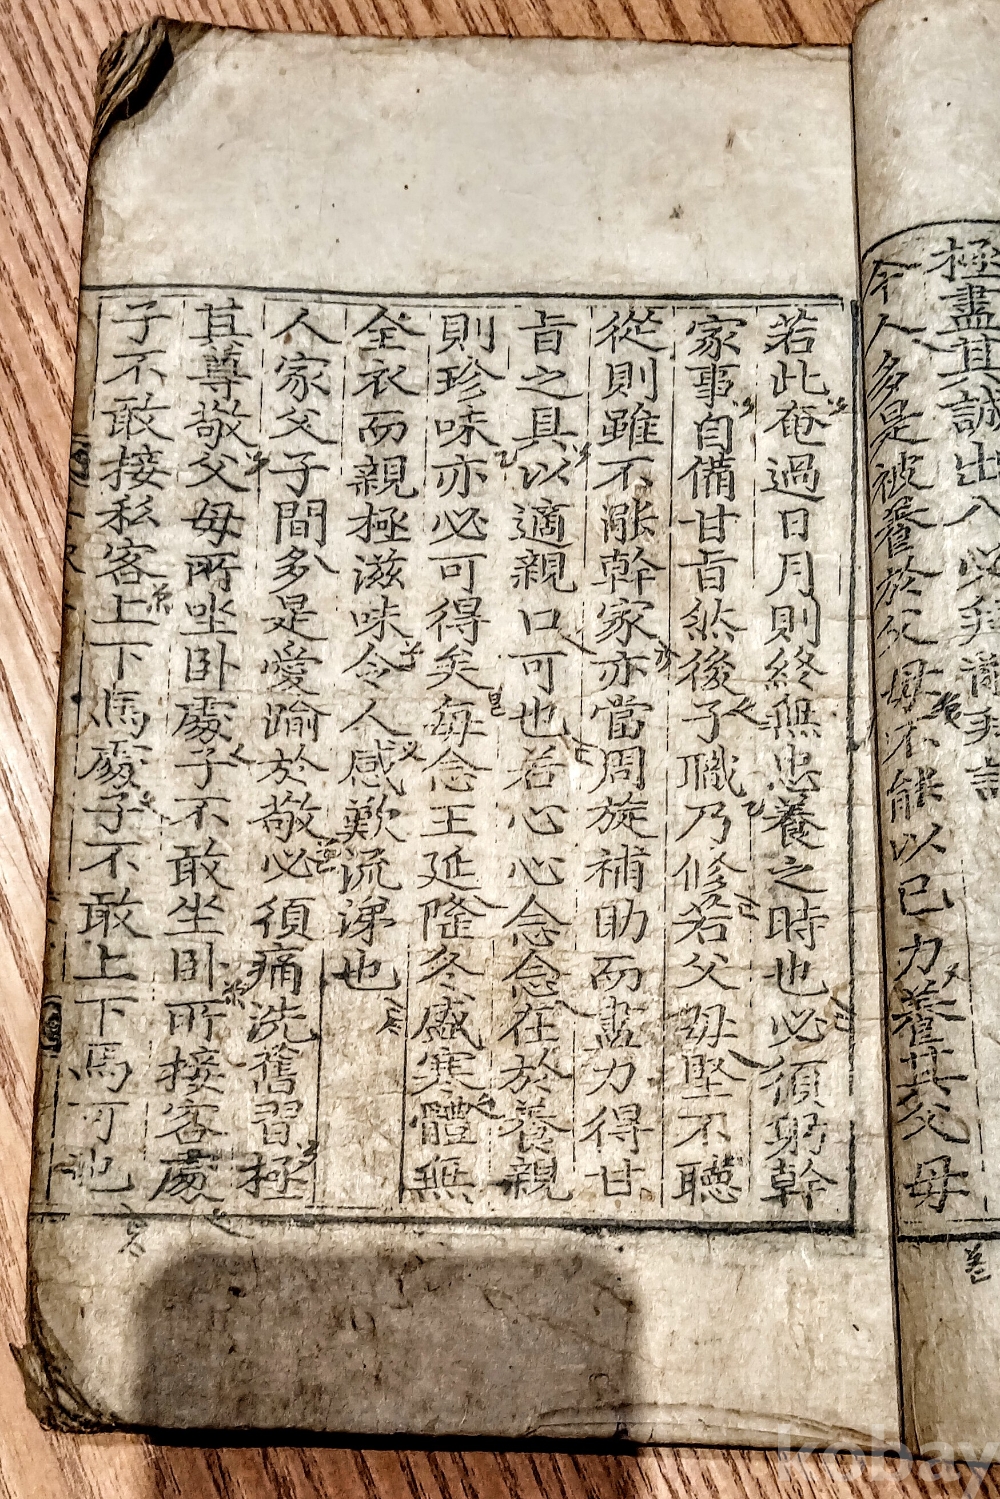 極盡其誠出入必拜辭拜謁
今人多是被養於父母不能以己力養其父母
若此奄過日月則終無忠養之時也必須躬幹
家事自備甘旨然後子職乃修若父母堅不聽
從則雖不能幹家亦當周旋補助而盡力得甘
旨之具以適親口可也若心心念念在於養親
則珍味亦必可得矣每念王延隆冬盛寒體無
全衣而親極滋味令人感歎流涕也
人家父子間多是愛踰於敬必須痛洗舊習極
其尊敬父母所坐臥處子不敢坐臥所接客處
子不敢接私客上下馬處子不敢上下馬可也
kobay